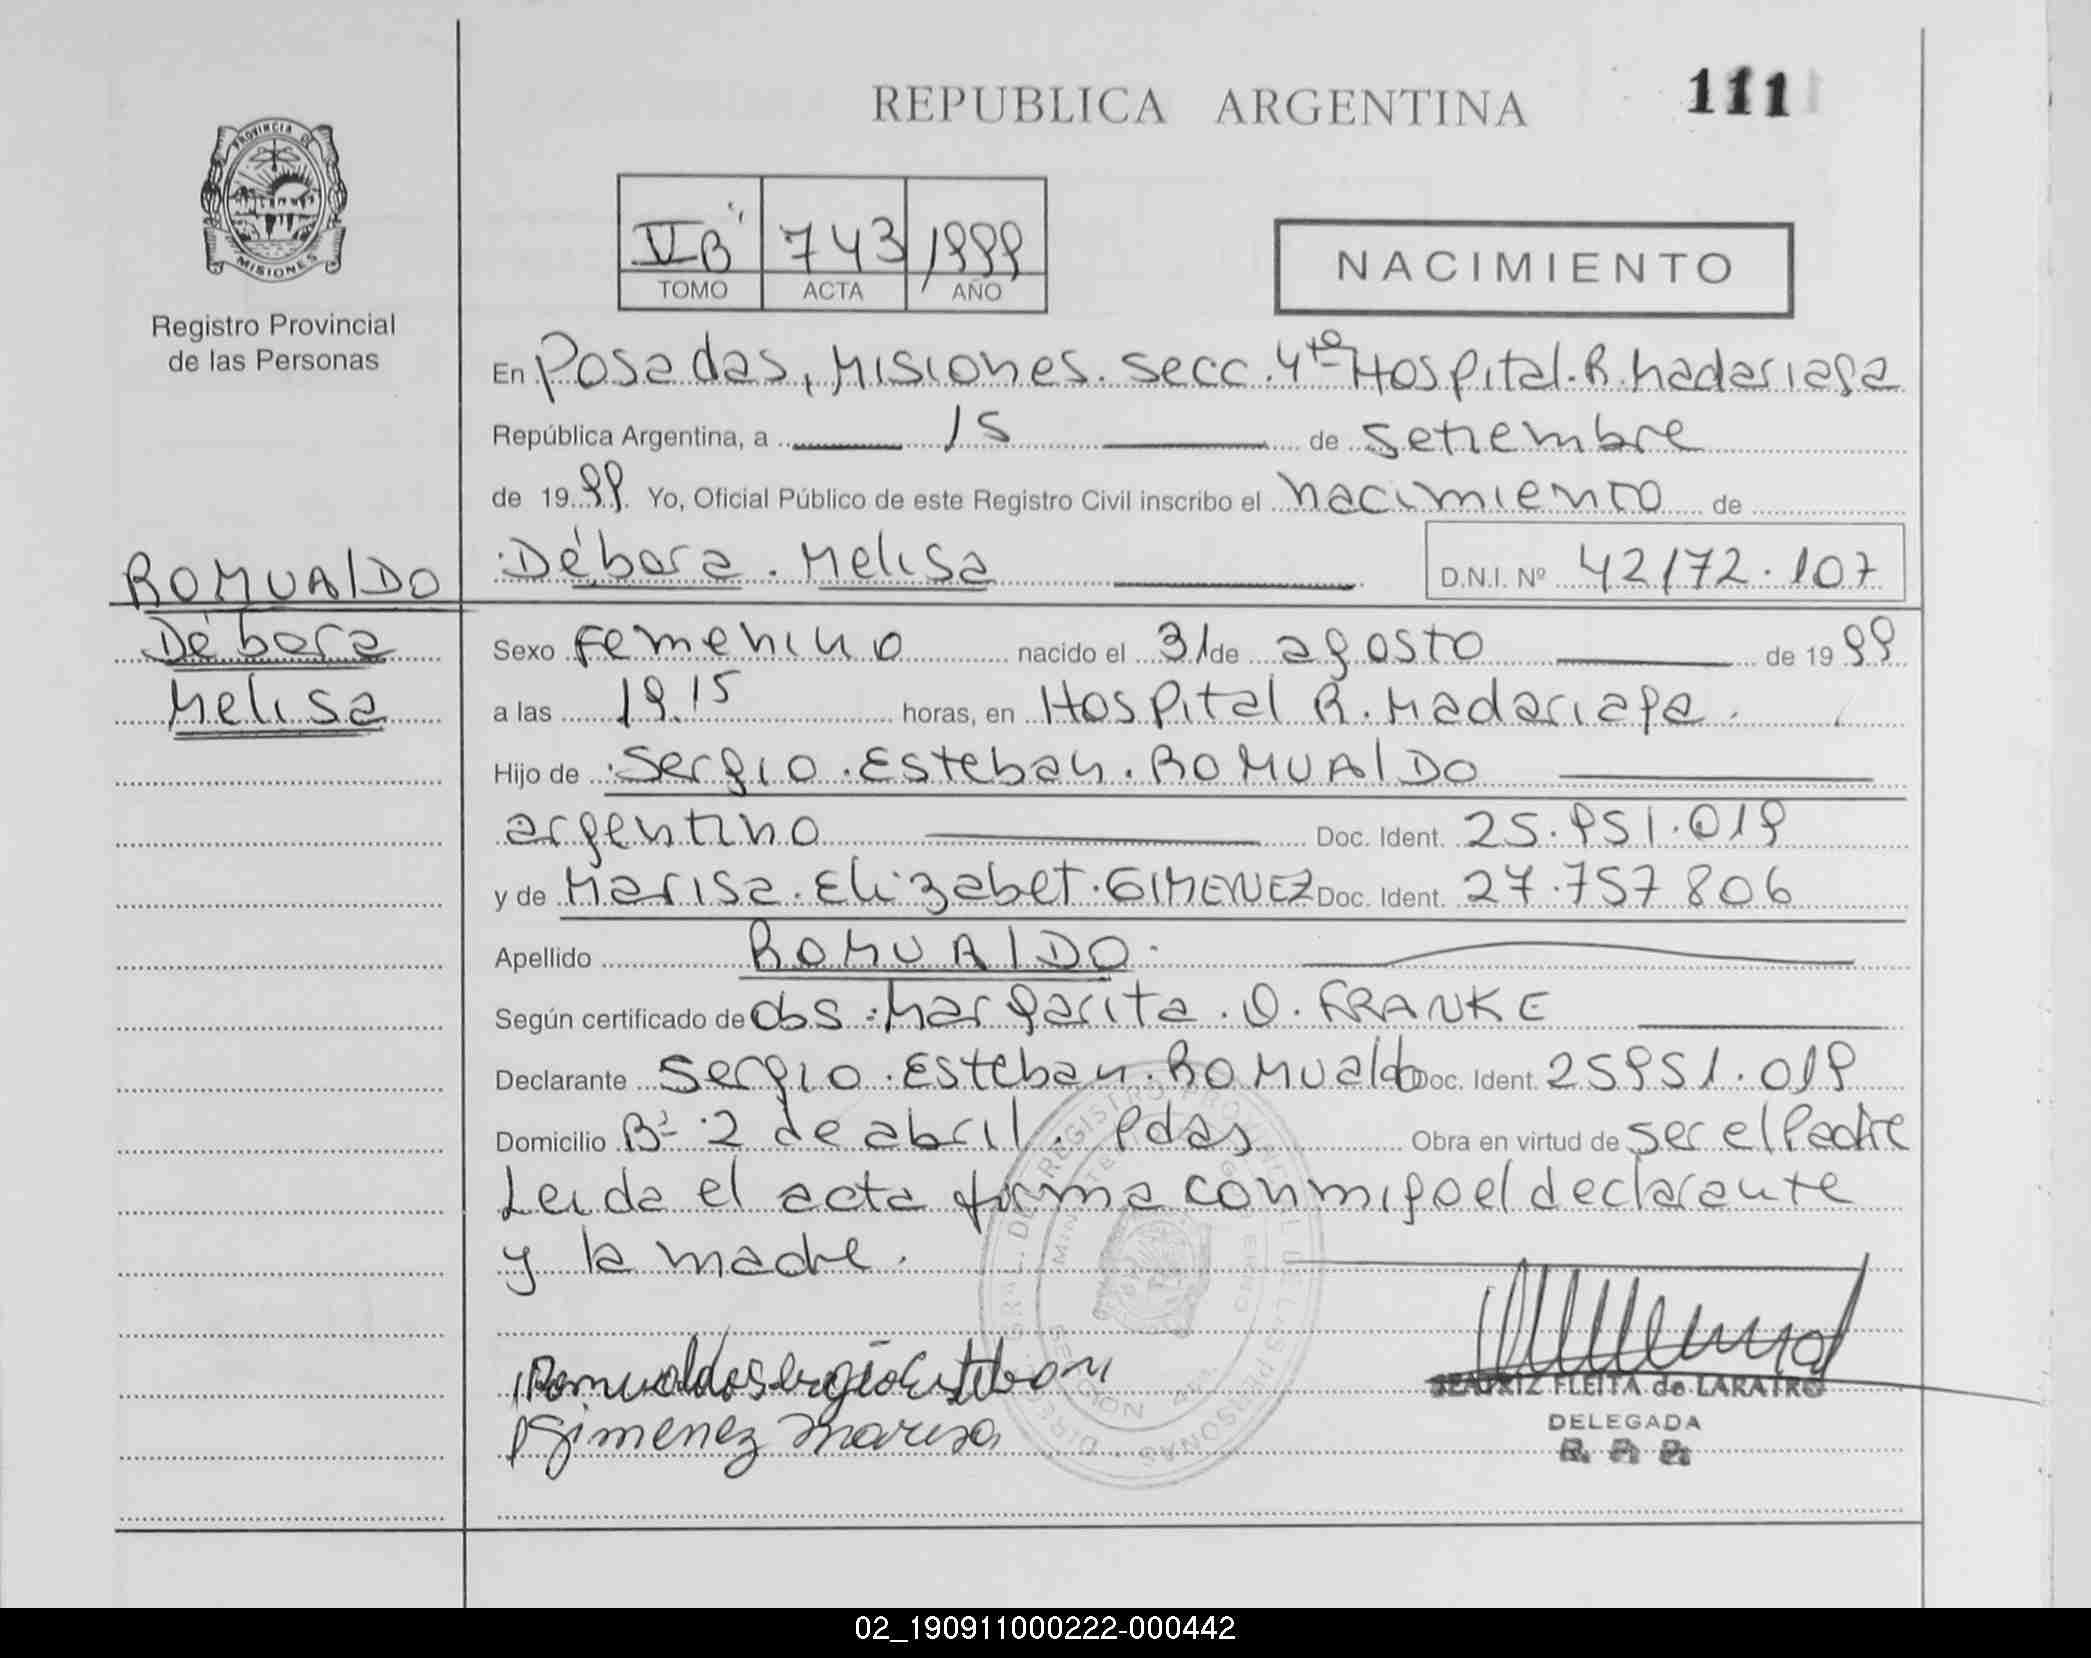 REPUBLICA ARGENTINA
111
PROVINCIA DE
MISIONES
Registro Provincial
de las Personas
V "B" 743 1999
TOMO ACTA AÑO
NACIMIENTO
En Posadas, Misiones. secc. 4ta Hospital. R. Madariaga
República Argentina, a 15 de setiembre
de 1999. Yo, Oficial Público de este Registro Civil inscribo el nacimiento de
Débora. Melisa D.N.I. Nº 42172.107
ROMUALDO
Débora
Melisa
Sexo Femenino nacido el 31 de agosto de 1999
a las 19.15 horas, en Hospital R. Madariaga.
Hijo de Sergio. Esteban. ROMUALDO
argentino Doc. Ident. 25.951.019
y de Marisa. Elizabet. GIMENEZ Doc. Ident. 27.757 806
Apellido ROMUALDO.
Según certificado de obs. Margarita. O. FRANKE
Declarante Sergio. Esteban. Romualdo Doc. Ident. 25951.019
Domicilio Bº 2 de abril. Pdas Obra en virtud de ser el Padre
Leida el acta firma conmigo el declarante
y la madre.
Romualdo Sergio Esteban
Gimenez Marisa
BEATRIZ FLEITA de LARATRO
DELEGADA
R. P. P.
02_190911000222-000442